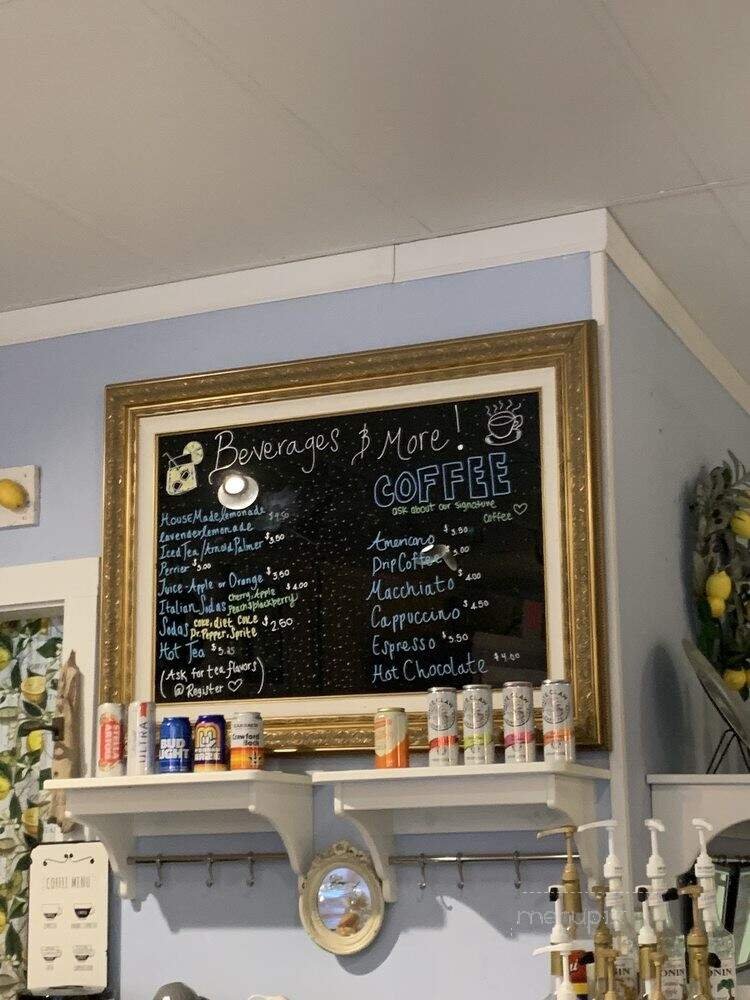 Beverages & More!
HouseMade lemonade $4.50
lavender lemonade
Iced Tea/Arnold Palmer $3.50
Perrier $3.00
Juice - Apple or Orange $3.50
Italian Sodas cherry, Apple $4.00
Peach & blackberry
Sodas coke, diet coke $2.50
Dr. Pepper, Sprite
Hot Tea
(Ask for tea flavors)
@ Register
COFFEE
ask about our signature
coffee
Americano $3.50
Drip Coffee 3.00
Macchiato $4.00
Cappuccino $4.50
Espresso $3.50
Hot Chocolate $4.00
STELLA
ARTOIS
ULTRA
BUD
LIGHT
Crawford
Bock
COFFEE MENU
MONIN
menupix